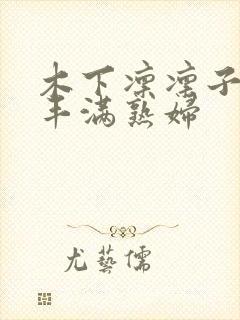 木下凛凛子
丰满熟婦
尤藝儒